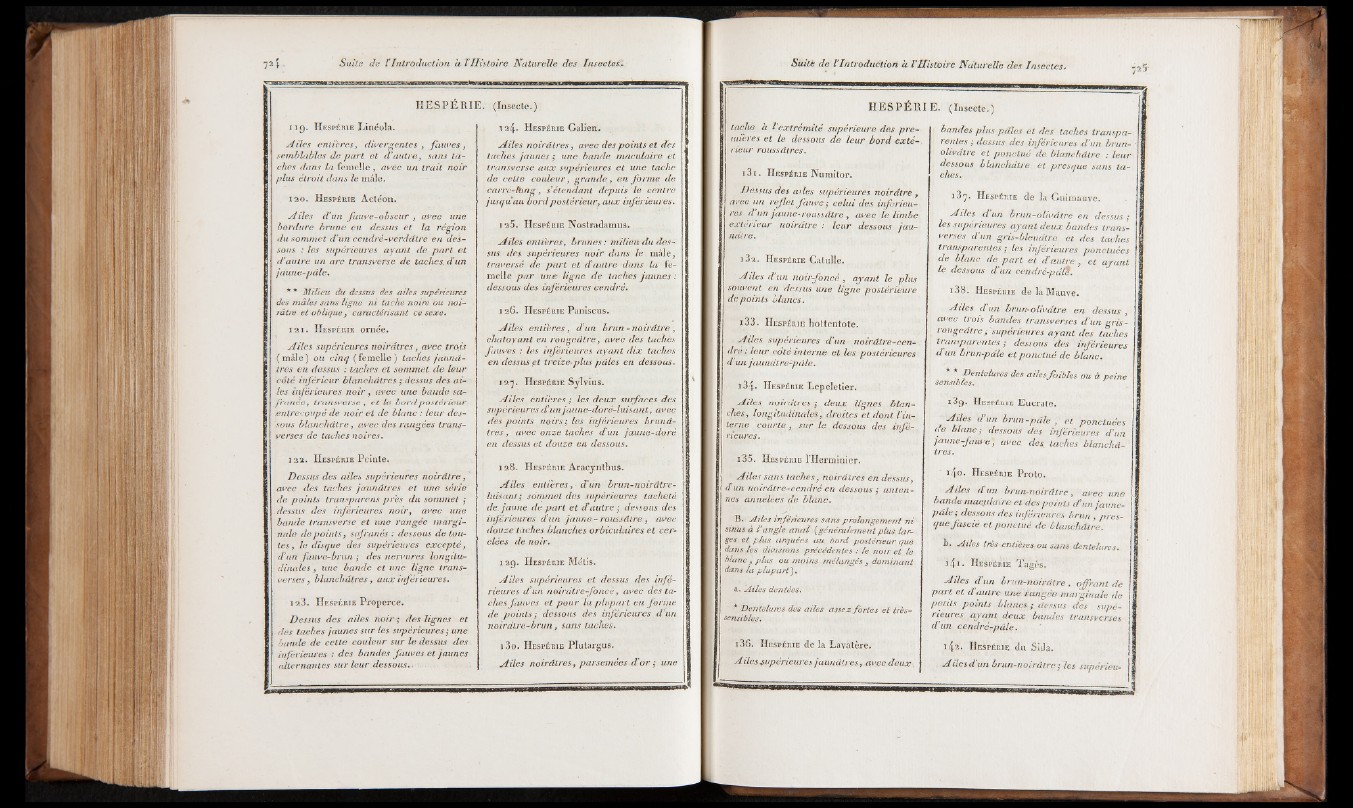 724 Suite de l'Introduction à l'Histoire Naturelle des Insectes.
HESPÉRIE. (Insecte.)
119. Hespérie Linéola.
Ailes entières, divergentes, fauves,
semblables de part et d'autre, sans ta-
ches dans la femelle, avec un trait noir
plus étroit dans le mâle.
120. Hespérie Actéon.
Ailes d'un fauve-obscur, avec une
bordure brune en dessus et la région
du sommet d'un cendré-verdâtre en des-
sous : les supérieures ayant de part et
d'autre un arc transverse de taches d'un
jaune-pâle.
** Milieu du dessus des ailes supérieures
des mâles sans ligne ni tache noire ou noi-
râtre et oblique, caractérisant ce sexe.
121. Hespérie ornée.
Ailes supérieures noirâtres, avec trois
(mâle) ou cinq (femelle) taches jaunâ-
tres en dessus : taches et sommet de leur
côté inférieur blanchâtres ; dessus des ai-
les inférieures noir, avec une bande sa-
franée, transverse, et le bord postérieur
entre-coupé de noir et de blanc : leur des-
sous blanchâtre, avec des rangées trans-
verses de taches noires.
122. Hespérie Peinte.
Dessus des ailes supérieures noirâtre,
avec des taches jaunâtres et une série
de points transparens près du sommet ;
dessus des inférieures noir, avec une
bande transverse et une rangée margi-
nale de points, safranés : dessous de tou-
tes, le disque des supérieures excepté,
d'un fauve-brun ; des nervures longitu-
dinales, une bande et une ligne trans-
verses, blanchâtres, aux inférieures.
123. Hespérie Properce.
Dessus des ailes noir ; des lignes et
des taches jaunes sur les supérieures ; une
bande de cette couleur sur le dessus des
inférieures : des bandes fauves et jaunes
alternantes sur leur dessous.
124. Hespérie Galien.
Ailes noirâtres, avec des points et des
taches jaunes ; une bande maculaire et
transverse aux supérieures et une tache
de cette couleur, grande, en forme de
carré-long, s'étendant depuis le centre
jusqu'au bord postérieur, aux inférieures.
125. Hespérie Nostradamus.
Ailes entières, brunes : milieu du des-
sus des supérieures noir dans le mâle,
traversé de part et d'autre dans la fe-
melle par une ligne de taches jaunes :
dessous des inférieures cendré.
126. Hespérie Paniscus.
Ailes entières, d'un brun-noirâtre,
chatoyant en rougeâtre, avec des taches
fauves : les inférieures ayant dix taches
en dessus et treize plus pâles en dessous.
127. Hespérie Sylvius.
Ailes entières ; les deux surfaces des
supérieures d'un jaune-doré-luisant, avec
des points noirs : les inférieures brunâ-
tres, avec onze taches d'un jaune-doré
en dessus et douze en dessous.
128. Hespérie Aracynthus.
Ailes entières, d'un brun-noirâtre-
luisant ; sommet des supérieures tacheté
de jaune de part et d'autre ; dessous des
inférieures d'un jaune-roussâtre, avec
douze taches blanches orbiculaires et cer-
clées de noir.
129. Hespérie Métis.
Ailes supérieures et dessus des infé-
rieures d'un noirâtre-foncé, avec des ta-
ches fauves et pour la plupart en forme
de points ; dessous des inférieures d'un
noirâtre-brun, sans taches.
130. Hespérie Plutargus.
Ailes noirâtres, parsemées d'or ; une
Suite de l'Introduction à l'Histoire Naturelle des Insectes. 725
HESPÉRIE. (Insecte.)
tache à l'extrémité supérieure des pre-
mières et le dessous de leur bord exté-
rieur roussâtres.
131. Hespérie Numitor.
Dessus des ailes supérieures noirâtre,
avec un reflet fauve ; celui des inférieu-
res d'un jaune-roussâtre, avec le limbe
extérieur noirâtre : leur dessous jau-
nâtre.
132. Hespérie Catulle.
Ailes d'un noir-foncé, ayant le plus
souvent en dessus une ligne postérieure
de points blancs.
133. Hespérie hottentote.
Ailes supérieures d'un noirâtre-cen-
dré ; leur côté interne et les postérieures
d'un jaunâtre-pâle.
134. Hespérie Lepeletier.
Ailes noirâtres ; deux lignes blan-
ches, longitudinales, droites et dont l'in-
terne courte, sur le dessous des infé-
rieures.
135. Hespérie l'Herminier.
Ailes sans taches, noirâtres en dessus,
d'un noirâtre-cendré en dessous ; anten-
nes annelées de blanc.
B. Ailes inférieures sans prolongement ni
sinus à l'angle anal (généralement plus lar-
ges et plus arquées au bord postérieur que
dans les divisions précédentes : le noir et le
blanc, plus ou moins mélangés, dominant
dans la plupart).
a. Ailes dentées.
* Dentelures des ailes assez fortes et très-
sensibles.
136. Hespérie de la Lavatère.
Ailes supérieures jaunâtres, avec deux
bandes plus pâles et des taches transpa-
rentes ; dessus des inférieures d'un brun-
olivâtre et ponctué de blanchâtre : leur
dessous blanchâtre et presque sans ta-
ches.
137. Hespérie de la Guimauve.
Ailes d'un brun-olivâtre en dessus ;
les supérieures ayant deux bandes trans-
verses d'un gris-bleuâtre et des taches
transparentes ; les inférieures ponctuées
de blanc de part et d'autre, et ayant
le dessous d'un cendré-pâle.
138. Hespérie de la Mauve.
Ailes d'un brun-olivâtre en dessus,
avec trois bandes transverses d'un gris-
rougeâtre, supérieures ayant des taches
transparentes ; dessous des inférieures
d'un brun-pâle et ponctué de blanc.
** Dentelures des ailes foibles ou à peine
sensibles.
139. Hespérie Eucrate.
Ailes d'un brun-pâle, et ponctuées
de blanc ; dessous des inférieures d'un
jaune-fauve, avec des taches blanchâ-
tres.
140. Hespérie Proto.
Ailes d'un brun-noirâtre, avec une
bande maculaire et des points d'un jaune-
pâle ; dessous des inférieures brun, pres-
que fascié et ponctué de blanchâtre.
b. Ailes très-entières ou sans dentelures.
141. Hespérie Tagès.
Ailes d'un brun-noirâtre, offrant de
part et d'autre une rangée marginale de
petits points blancs ; dessus des supé-
rieures ayant deux bandes transverses
d'un cendré-pâle.
142. Hespérie du Sida.
Ailes d'un brun-noirâtre ; les supérieu-